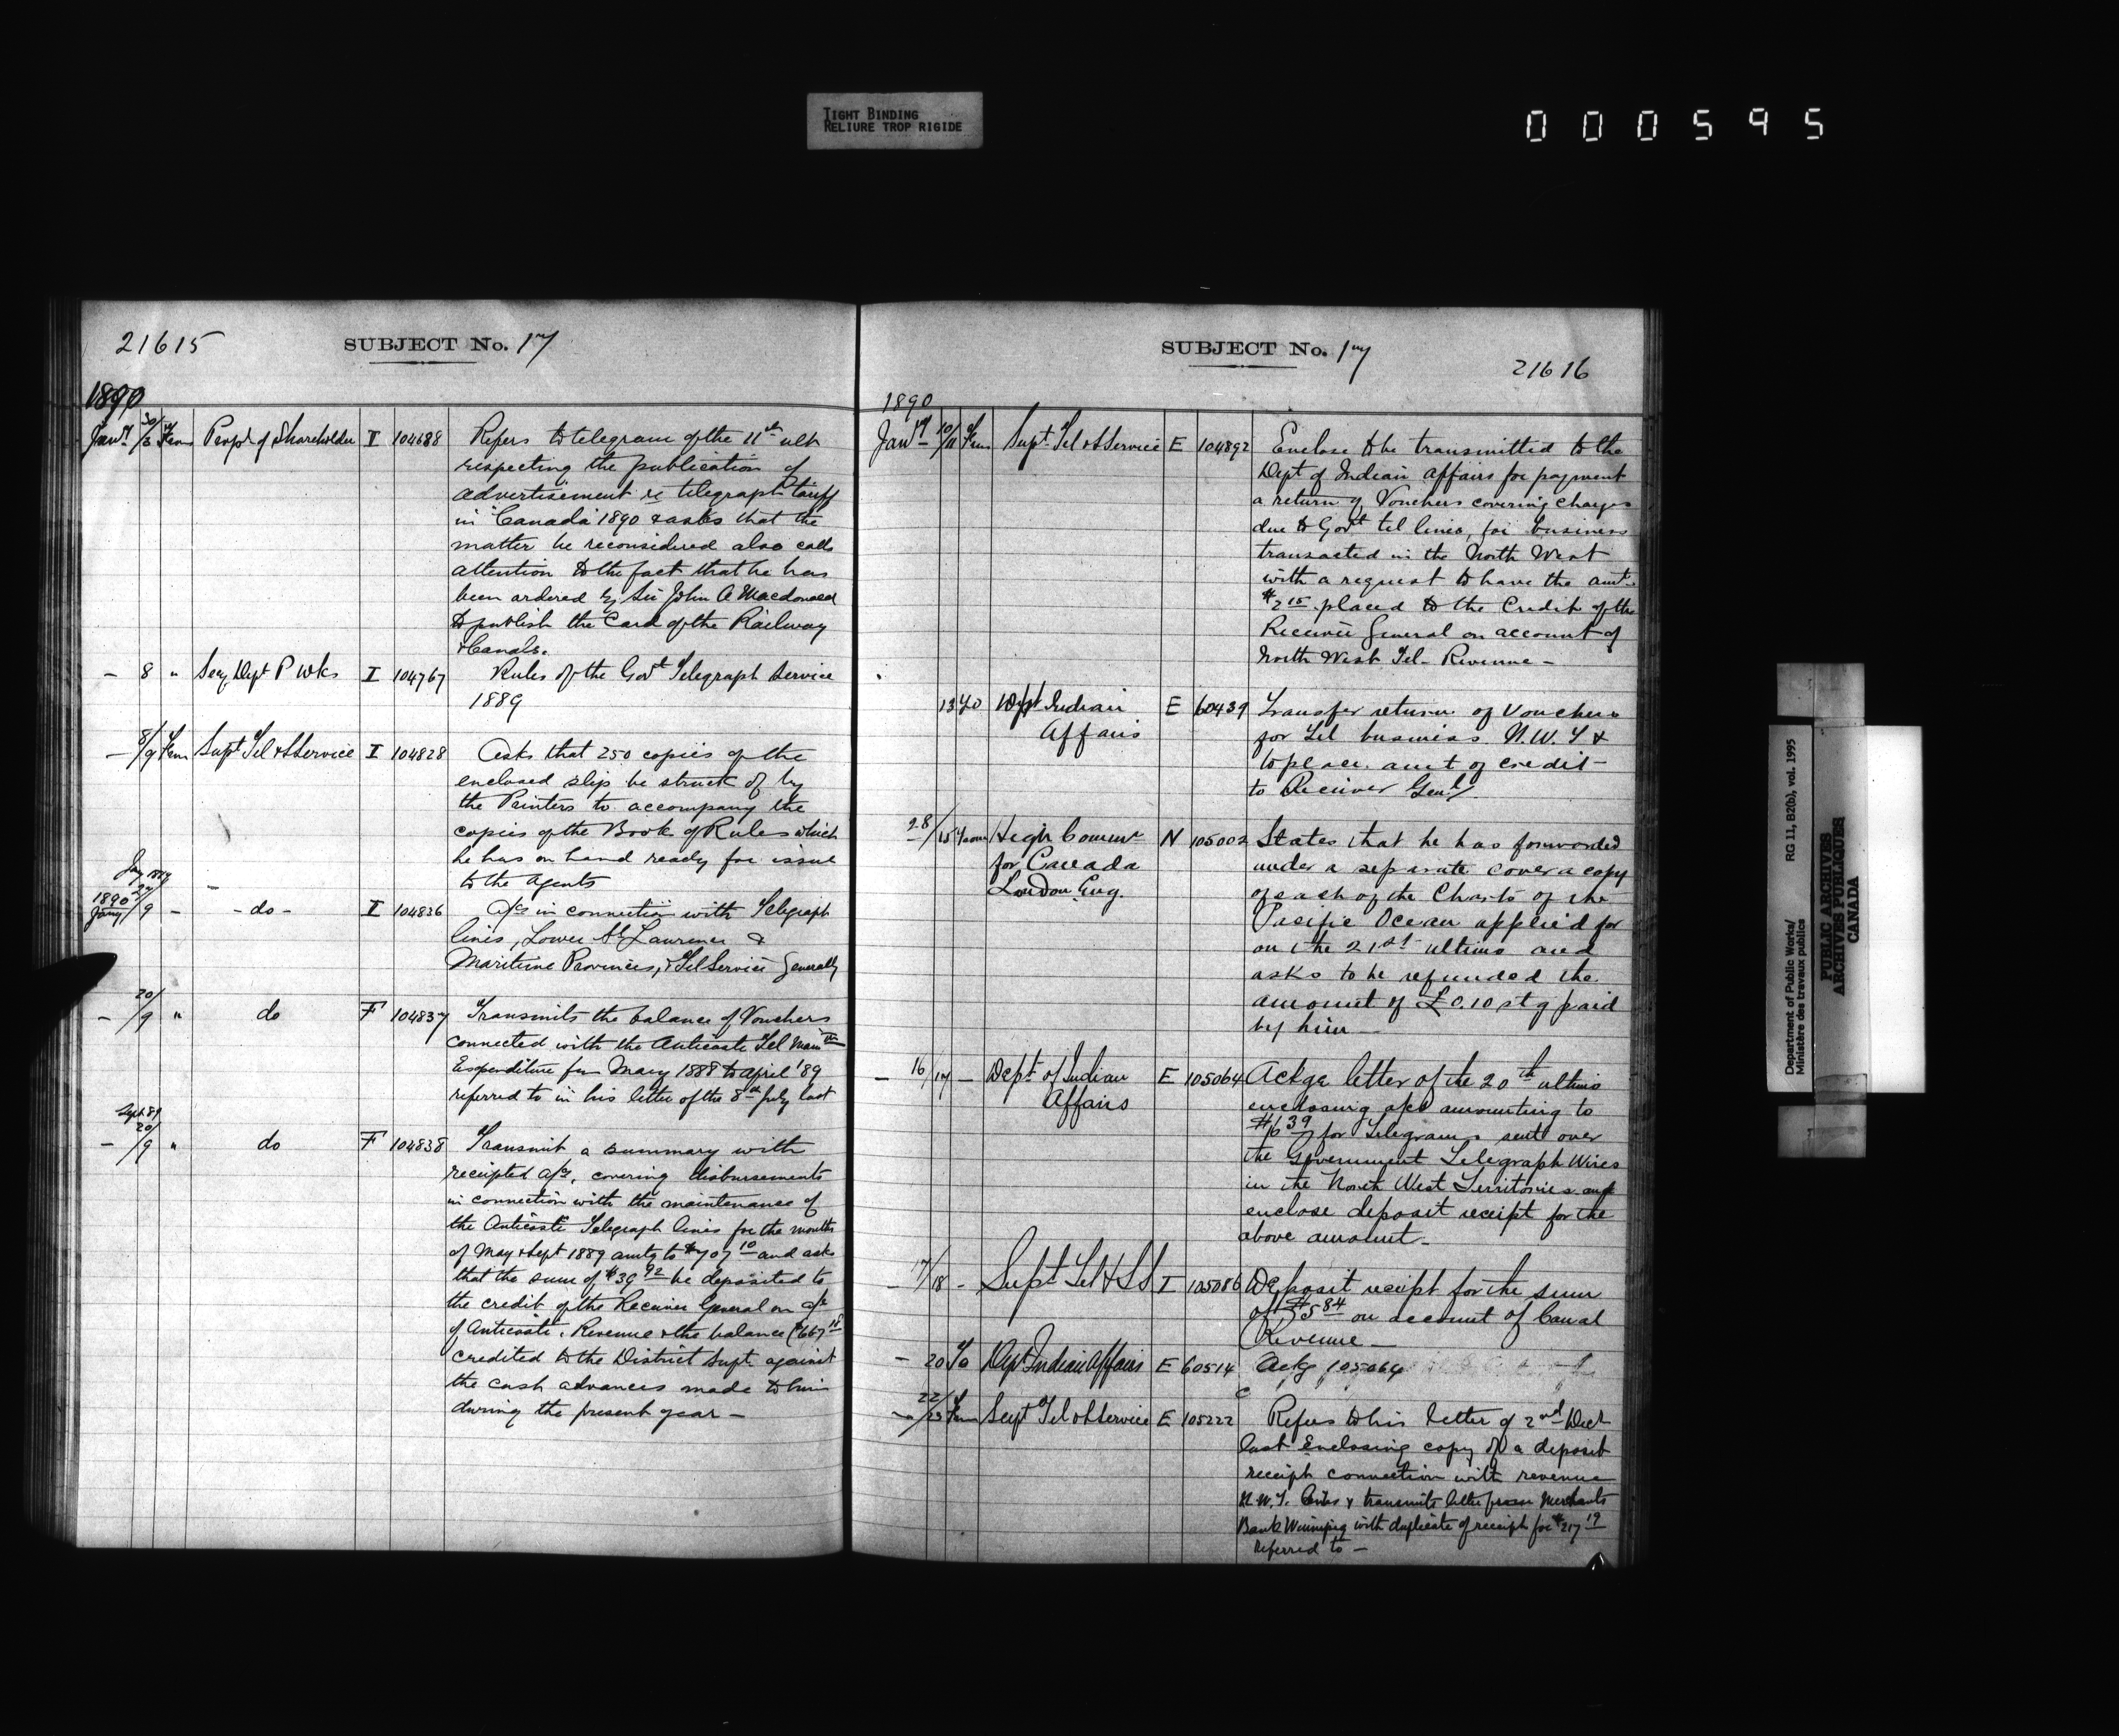 TIGHT BINDING
RELIURE TROP RIGIDE
000595
21615
SUBJECT No. 17
1890
Jany 30/3 From Propr of Shareholder I 104688 Refers to telegram of the 11th ult
respecting the publication of
advertisement re telegraph tariff
in "Canada" 1890 & asks that the
matter be reconsidered also calls
attention to the fact that he has
been ordered by Sir John A Macdonald
to publish the Card of the Railway
& Canals.
— 8 " Secy Dept P Wks I 104767 Rules of the Govt Telegraph Service
1889
— 8/9 From Supt Tel & S Service I 104828 Asks that 250 copies of the
enclosed slip be struck of by
the Printers to accompany the
copies of the Book of Rules which
he has on hand ready for issue
to the agents
1890
Jany /9 - - do - I 104836 A/cs in connection with Telegraph
lines, Lower St Lawrence &
Maritime Provinces, & Tel Service Generally
— 20/9 " do F 104837 Transmits the balance of Vouchers
connected with the Anticosti Tel Main
Expenditure from May 1888 to April '89
referred to in his letter of the 8th July last
Sept 89
— 20/9 " do F 104838 Transmit a summary with
receipted a/cs, covering disbursements
in connection with the maintenance of
the Anticosti Telegraph lines for the months
of May & Sept 1889 amtg to $707 10 and asks
that the sum of $39 92 be deposited to
the credit of the Receiver General on a/c
of Anticosti Revenue & the balance ($667 18
credited to the District Supt against
the cash advances made to him
during the present year —
SUBJECT No. 17
21616
1890
Jany 10/11 From Supt Tel & S Service E 104892 Enclose to be transmitted to the
Dept of Indian Affairs for payment
a return of Vouchers covering charges
due to Govt tel lines, for business
transacted in the North West
with a request to have the amt
$2 15 placed to the Credit of the
Receiver General on account of
North West Tel. Revenue —
13 To Dept Indian E 60439 Transfer return of Vouchers
Affairs for Tel business N.W.T &
to place amt of credit
to Receiver Genl
28/15 From High Commr N 105002 States that he has forwarded
for Canada under a separate cover a copy
London Eng. of each of the Charts of the
Pacific Ocean applied for
on the 21st ultimo and
asks to be refunded the
amount of £0.10 stg paid
by him —
— 16/17 — Dept of Indian E 105064 Ackge letter of the 20th ultimo
Affairs enclosing a/cs amounting to
$6 39 for Telegrams sent over
the Government Telegraph Wires
in the North West Territories and
enclose deposit receipt for the
above amount —
— 17/18 - Supt Tel & SS I 105086 Deposit receipt for the sum
of $5 84 on account of Canal
Revenue —
— 20 To Dept Indian Affairs E 60514 Ackg 105064
22/23 From Supt Tel & S Service E 105222 Refers to his letter of 2nd Dect
last Enclosing copy of a deposit
receipt connection with revenue
N.W.T. lines & transmits letter from Merchants
Bank Winnipeg with duplicate of receipt for $217 19
referred to —
Department of Public Works/
Ministère des travaux publics
RG 11, B2(b), vol. 1995
PUBLIC ARCHIVES
ARCHIVES PUBLIQUES
CANADA